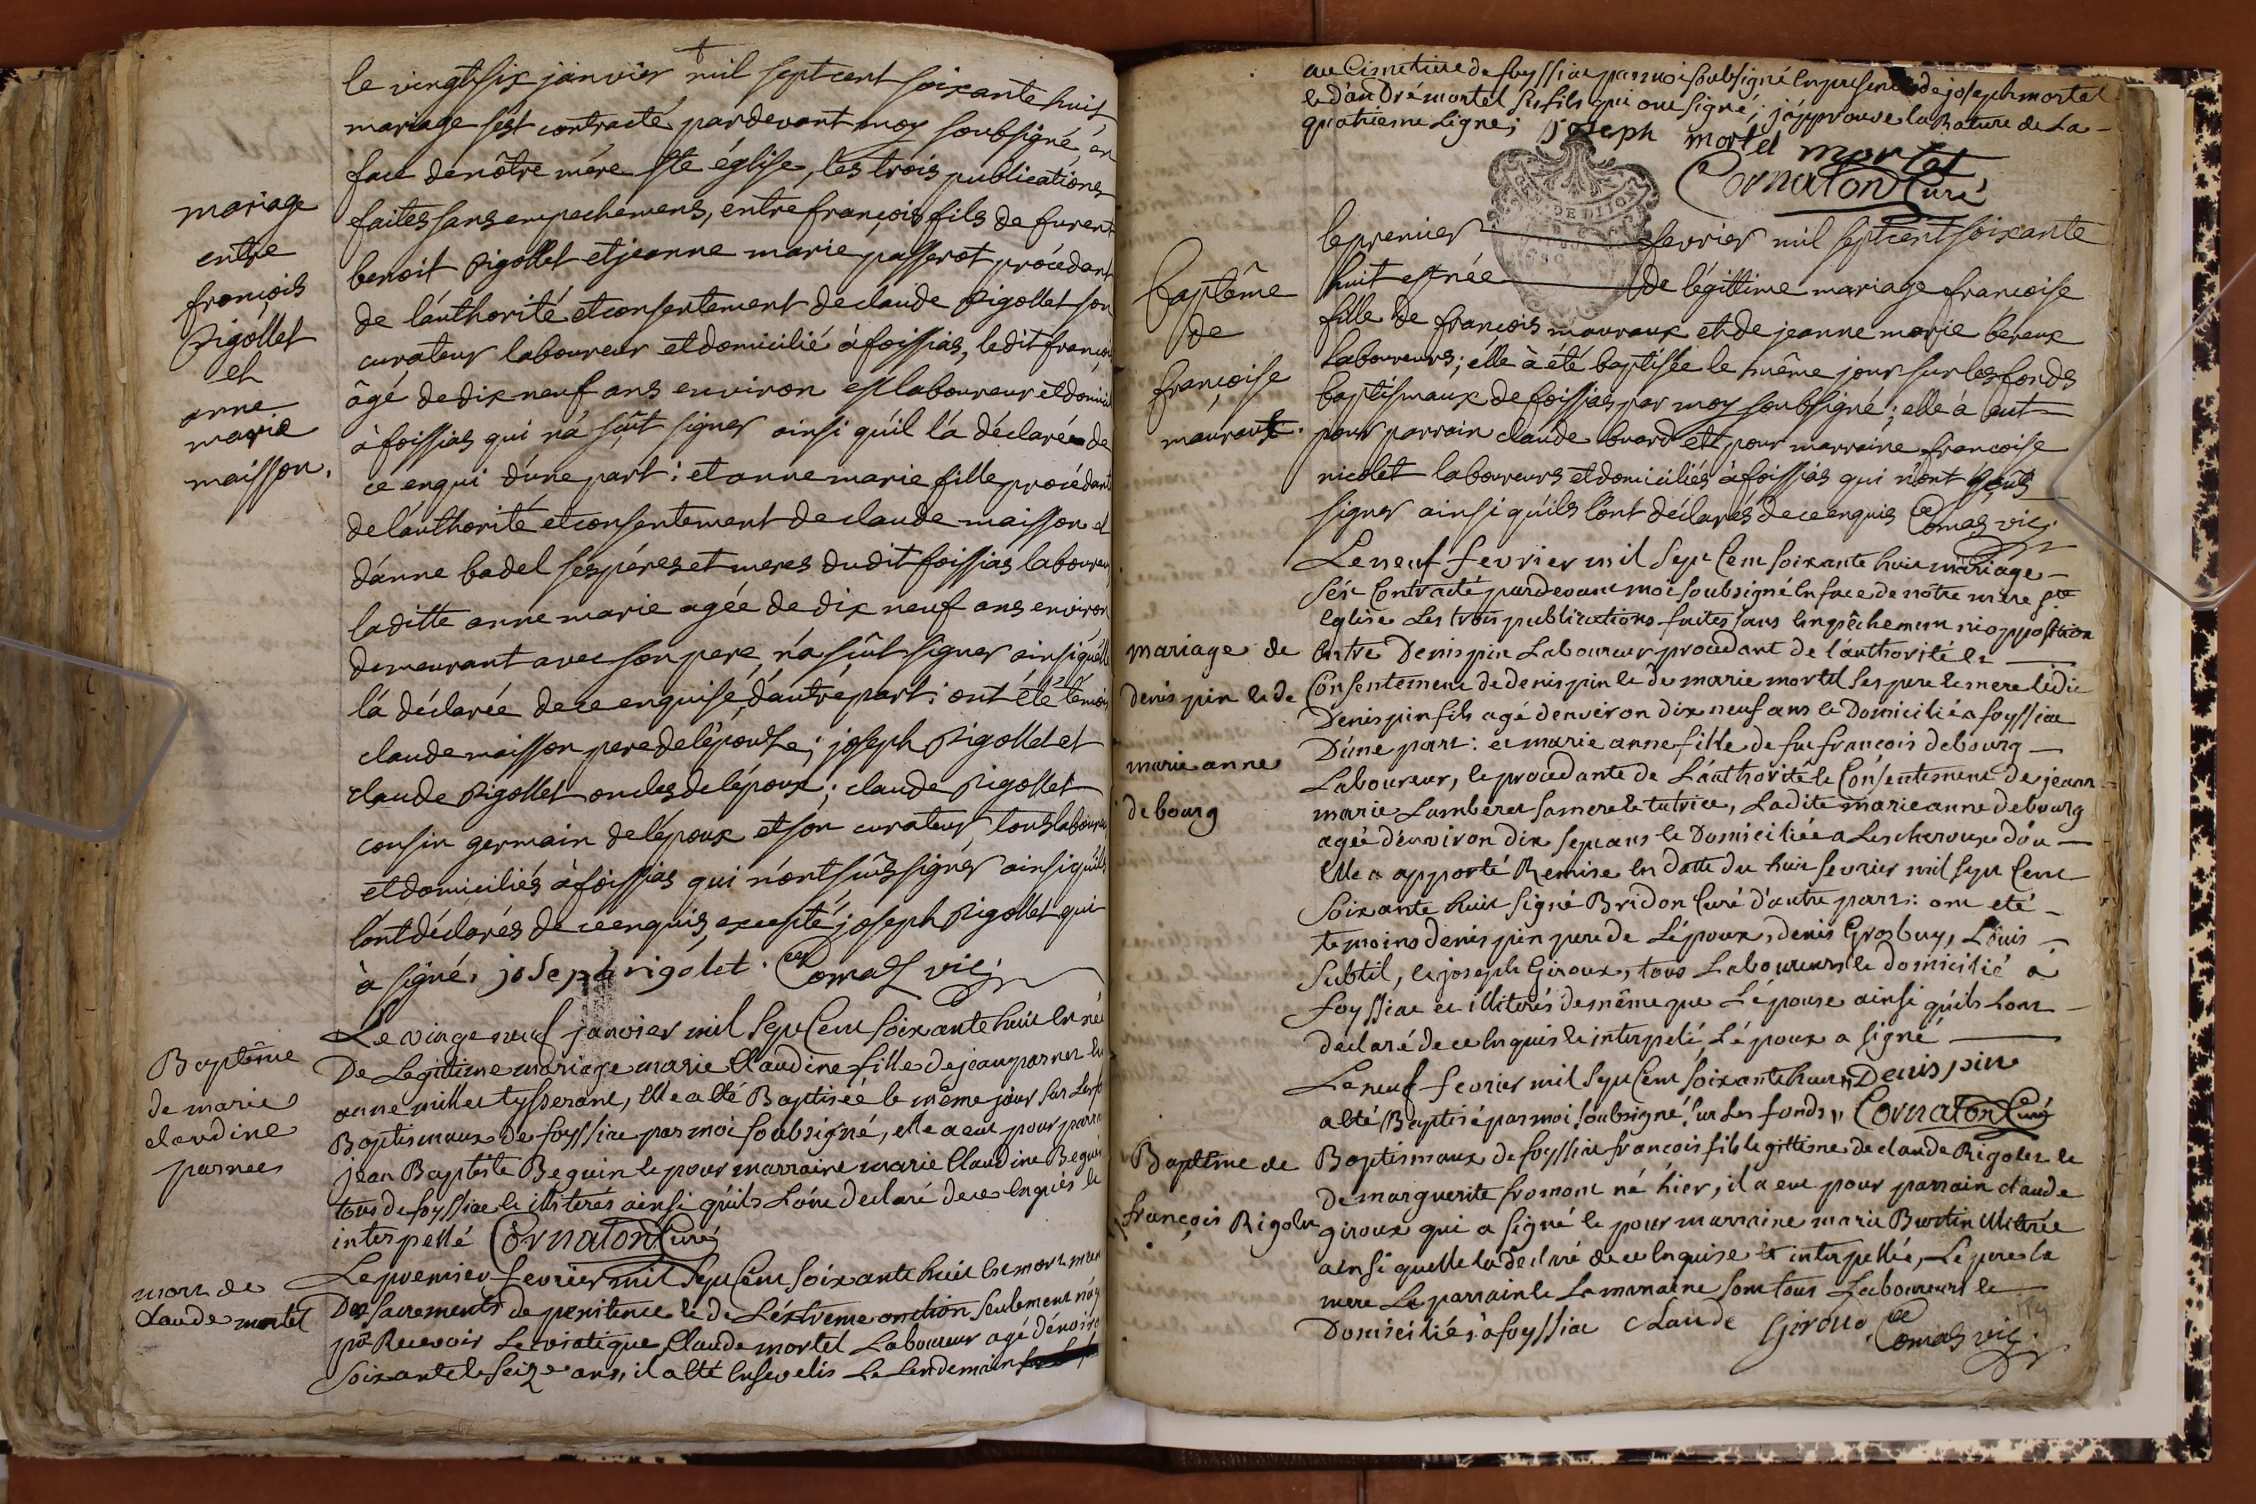 le vingt six janvier mil sept cent soixante huit
mariage s'est contracté pardevant moy soubsigné en
face de nôtre mére ste église, les trois publications
faites sans empechemens, entre françois fils de furent
benoit Rigollet et jeanne marie passerot procédant
de l'authorité et consentement de claude Rigollet son
curateur laboureur et domicilié à foissias, le dit françois
âgé de dix neuf ans environ est laboureur et domicil
à foissias qui n'a sçût signer ainsi qu'il l'a déclaré de
ce enqui d'une part : et anne marie fille procédant
de l'authorité et consentement de claude maisson et
d'anne badel ses péres et meres du dit foissias laboureurs
la ditte anne marie agée de dix neuf ans environ
demeurant avec son pere, n'a sçût signer ainsi qu'elle
l'a déclarée de ce enquise, d'autre part : ont été témoins
claude maisson pere de l'épouse ; joseph Rigollet et
claude Rigollet oncles de l'époux ; claude Rigollet
cousin germain de l'époux et son curateur tous laboureurs
et domiciliés à foissias qui n'ont sçûs signer ainsi qu'ils
l'ont déclarés de ce enquis, excepté joseph Rigollet qui
à signé. joseph rigolet. Comas vic;
mariage
entre
françois
Rigollet
et
anne
marie
maisson.
Le vingt neuf janvier mil sept Cent soixante huit est née
De Legittime mariage marie Claudine fille de jean parnet et
anne millet tysserant, Elle a été Baptisée le même jour sur Les fo
Baptismaux de foyssiat par moi soubsigné, elle a eut pour parra
jean Baptiste Beguin et pour marraine marie Claudine Beguin
tous de foyssiat et illiterés ainsi qu'ils L'ont declaré de ce Enquis et
interpellé Cornaton Curé
Baptême
de marie
claudine
parnet
Le premier fevrier mil sept Cent soixante huit est mort muni
Des sacrements de penitence et de L'extreme onction seulement n'ay
pû Recevoir Le viatique, Claude mortel Laboureur agé d'environ
soixante et seize ans, il a été Ensevelis Le Lendemain
mort de
claude mortel
au Cimetiere de foyssiat par moi soubsigné En presence de joseph mortel
et d'andré mortel ses fils qui ont signé ; j'approuve la Rature de La
quatrieme Ligne; joseph mortel mortel
Cornaton Curé
le premier fevrier mil sept cent soixante
huit est née de légittime mariage françoise
fille de françois mauraux et de jeanne marie bereux
laboureurs ; elle à été baptisée le même jour sur les fonds
baptismaux de foissias par moy soubsigné ; elle à eut
pour parrain claude buard et pour marraine françoise
nicolet laboureurs et domiciliés à foissias qui n'ont sçûs
signer ainsi qu'ils l'ont déclarés de ce enquis Comas vic;
baptême
de
françoise
mauraux.
Le neuf fevrier mil sept Cent soixante huit mariage
s'est Contracté pardevant moi soubsigné En face de nôtre mere ste
Eglise Les trois publications faites sans Empêchement ni opposition
Entre Denis pin Laboureur procedant de l'authorité et
Consentement de denis pin et de marie mortel ses pere et mere Ledit
Denis pin fils agé d'environ dix neuf ans et Domicilié a foyssiat
D'une part : et marie anne fille de fut françois debourg
Laboureur, et procedante de L'authorité et Consentement de jeanne
marie Lamberet sa mere et tutrice, Ladite marie anne debourg
agée d'environ dix sept ans et Domiciliée a Lescheroux d'ou
Elle a apporté Remise En datte du huit fevrier mil sept Cent
soixante huit signé Bridon Curé d'autre part : ont eté
temoins denis pin pere de L'époux, denis Grosbuy, Louis
subtil, et joseph Giroux, tous Laboureurs et domicilié à
foyssiat et illiterés de même que L'épouse ainsi qu'ils L'ont
declaré de ce Enquis et interpelé, L'époux a signé
Denis pin
Cornaton Curé
mariage de
denis pin et de
marie anne
debourg
Le neuf fevrier mil sept Cent soixante huit
a été Baptisé par moi soubsigné sur Les fonds
Baptismaux de foyssiat françois fils legittime de claude Rigolet et
de marguerite fromont né hier, il a eut pour parrain claude
giroux qui a signé et pour marraine marie Burtin illiterée
ainsi quelle la declaré de ce Enquise et interpellée, Le pere la
mere Le parrain et La marraine sont tous Laboureurs et
Domiciliés à foyssiat claude Giroud. Comas vic;
Baptême de
françois Rigolet